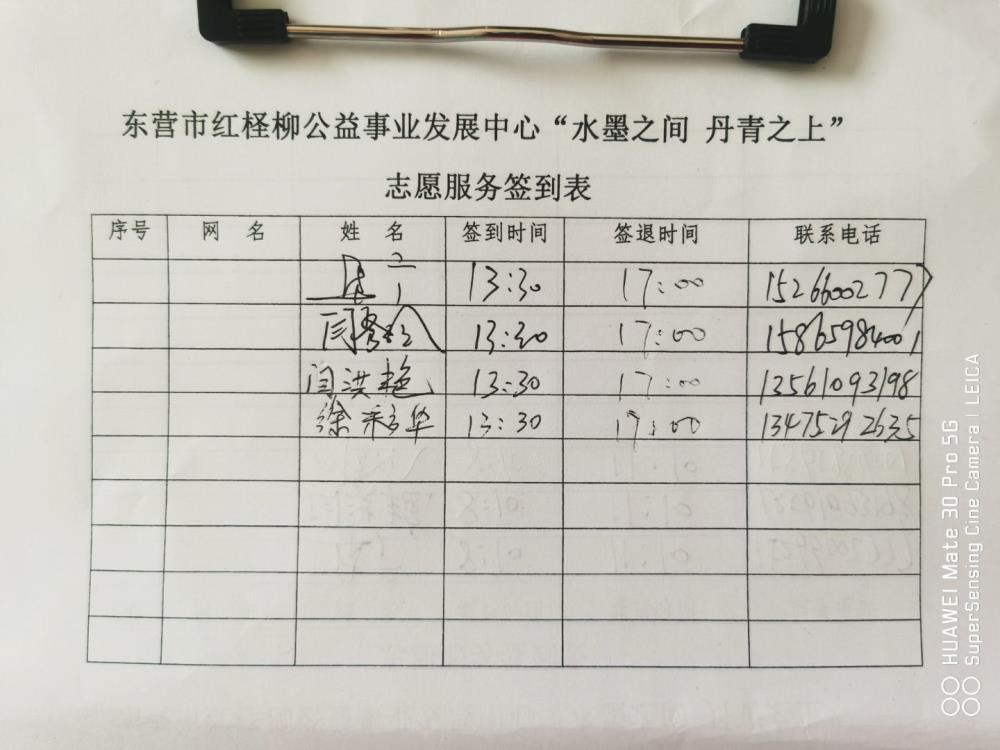 东营市红柽柳公益事业发展中心“水墨之间 丹青之上”
志愿服务签到表
序号 网 名 姓 名 签到时间 签退时间 联系电话
13:30 17:00 15266002777
13:30 17:00 15865984001
闫洪艳 13:30 17:00 13561093198
徐彩华 13:30 17:00 13475292635
HUAWEI Mate 30 Pro 5G
SuperSensing Cine Camera | LEICA